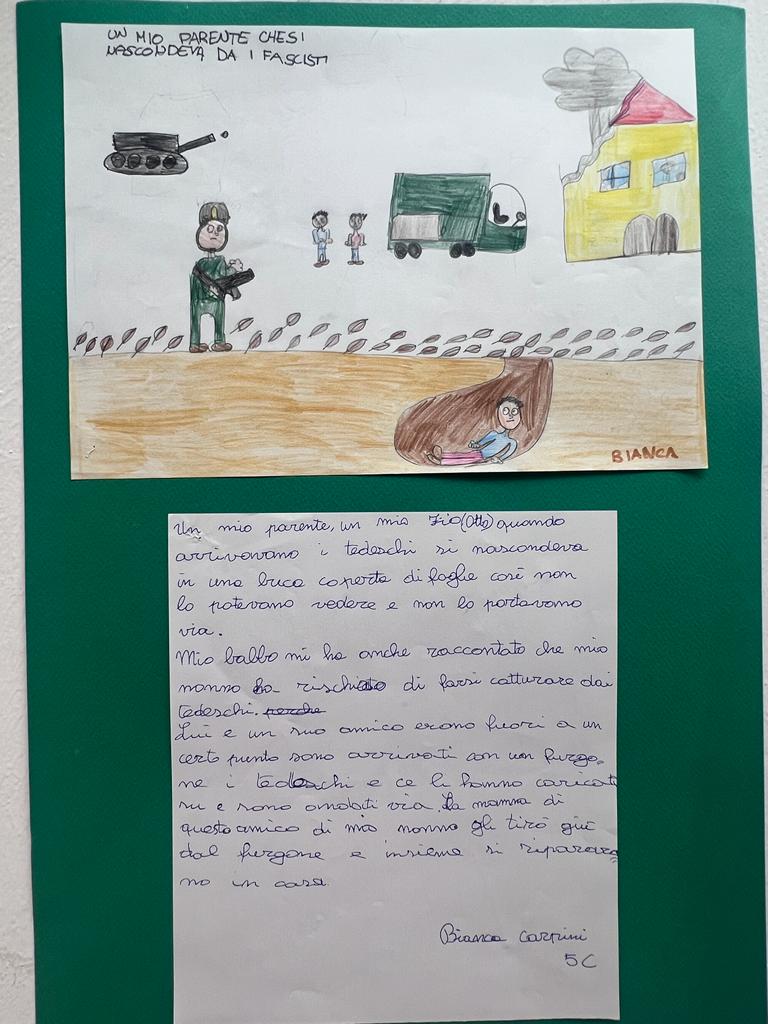 UN MIO PARENTE CHE SI
NASCONDEVA DA I FASCISTI
BIANCA
Un mio parente, un mio zio (Otto) quando
arrivavano i tedeschi si nascondeva
in una buca coperta di foglie così non
lo potevano vedere e non lo portavano
via.
Mio babbo mi ha anche raccontato che mio
nonno ha rischiato di farsi catturare dai
tedeschi. perchè
Lui e un suo amico erano fuori a un
certo punto sono arrivati con un furgo-
ne i tedeschi e ce li hanno caricati
su e sono andati via. La mamma di
questo amico di mio nonno gli tirò giù
dal furgone e insieme si ripararo
no in casa
Bianca Carpini
5C